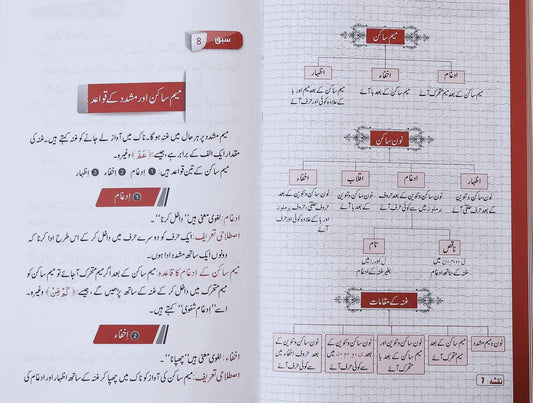 میم ساکن
ادغام
اخفاء
اظہار
میم ساکن کے بعد میم متحرک آئے
میم ساکن کے بعد با آئے
میم ساکن کے بعد میم اور با
کے علاوہ کوئی اور حرف آئے
نون ساکن
اظہار
ادغام
اقلاب
اخفاء
نون ساکن و تنوین کے
بعد حرف حلقی آئے
نون ساکن و تنوین کے بعد
یرملون میں سے کوئی حرف آئے
نون ساکن و تنوین
کے بعد با آئے
نون ساکن و تنوین کے بعد
حروف حلقی، حروف یرملون
اور با کے علاوہ کوئی اور
حرف آئے
ناقص
تام
ی و م ن میں
غنہ کے ساتھ ادغام
ل اور ر میں
بغیر غنہ کے ادغام
غنہ کے مقامات
نون و میم مشدد
میم ساکن کے بعد
میم متحرک آئے
نون ساکن و تنوین
اور میم ساکن کے بعد
با آئے
نون ساکن و تنوین کے
بعد ی و م ن میں
سے کوئی حرف آئے
نون ساکن و تنوین کے
بعد حروف اخفاء میں
سے کوئی حرف آئے
نقشہ: 7
سبق
8
میم ساکن اور مشدد کے قواعد
میم مشدد پر ہر حال میں غنہ ہوگا۔ ناک میں آواز لے جانے کو غنہ کہتے ہیں۔ غنہ کی
مقدار ایک الف کے برابر ہے، جیسے: ﴿عَمَّ﴾ وغیرہ۔
میم ساکن کے تین قواعد ہیں: ① ادغام ② اخفاء ③ اظہار
① ادغام
ادغام: لغوی معنی ہیں ”داخل کرنا“۔
اصطلاحی تعریف: ایک حرف کو دوسرے حرف میں داخل کر کے اس طرح ادا کرنا کہ
دونوں ایک ساتھ مشدد ادا ہوں۔
میم ساکن کے ادغام کا قاعدہ: میم ساکن کے بعد اگر میم متحرک آ جائے تو میم ساکن کو
میم متحرک میں داخل کر کے غنہ کے ساتھ پڑھیں گے، جیسے: وغیرہ۔
اسے ”ادغام شفوی“ کہتے ہیں۔
② اخفاء
اخفاء: لغوی معنی ہیں ”چھپانا“۔
اصطلاحی تعریف: میم ساکن کی آواز کو ناک میں چھپا کر غنہ کے ساتھ اظہار اور ادغام کی